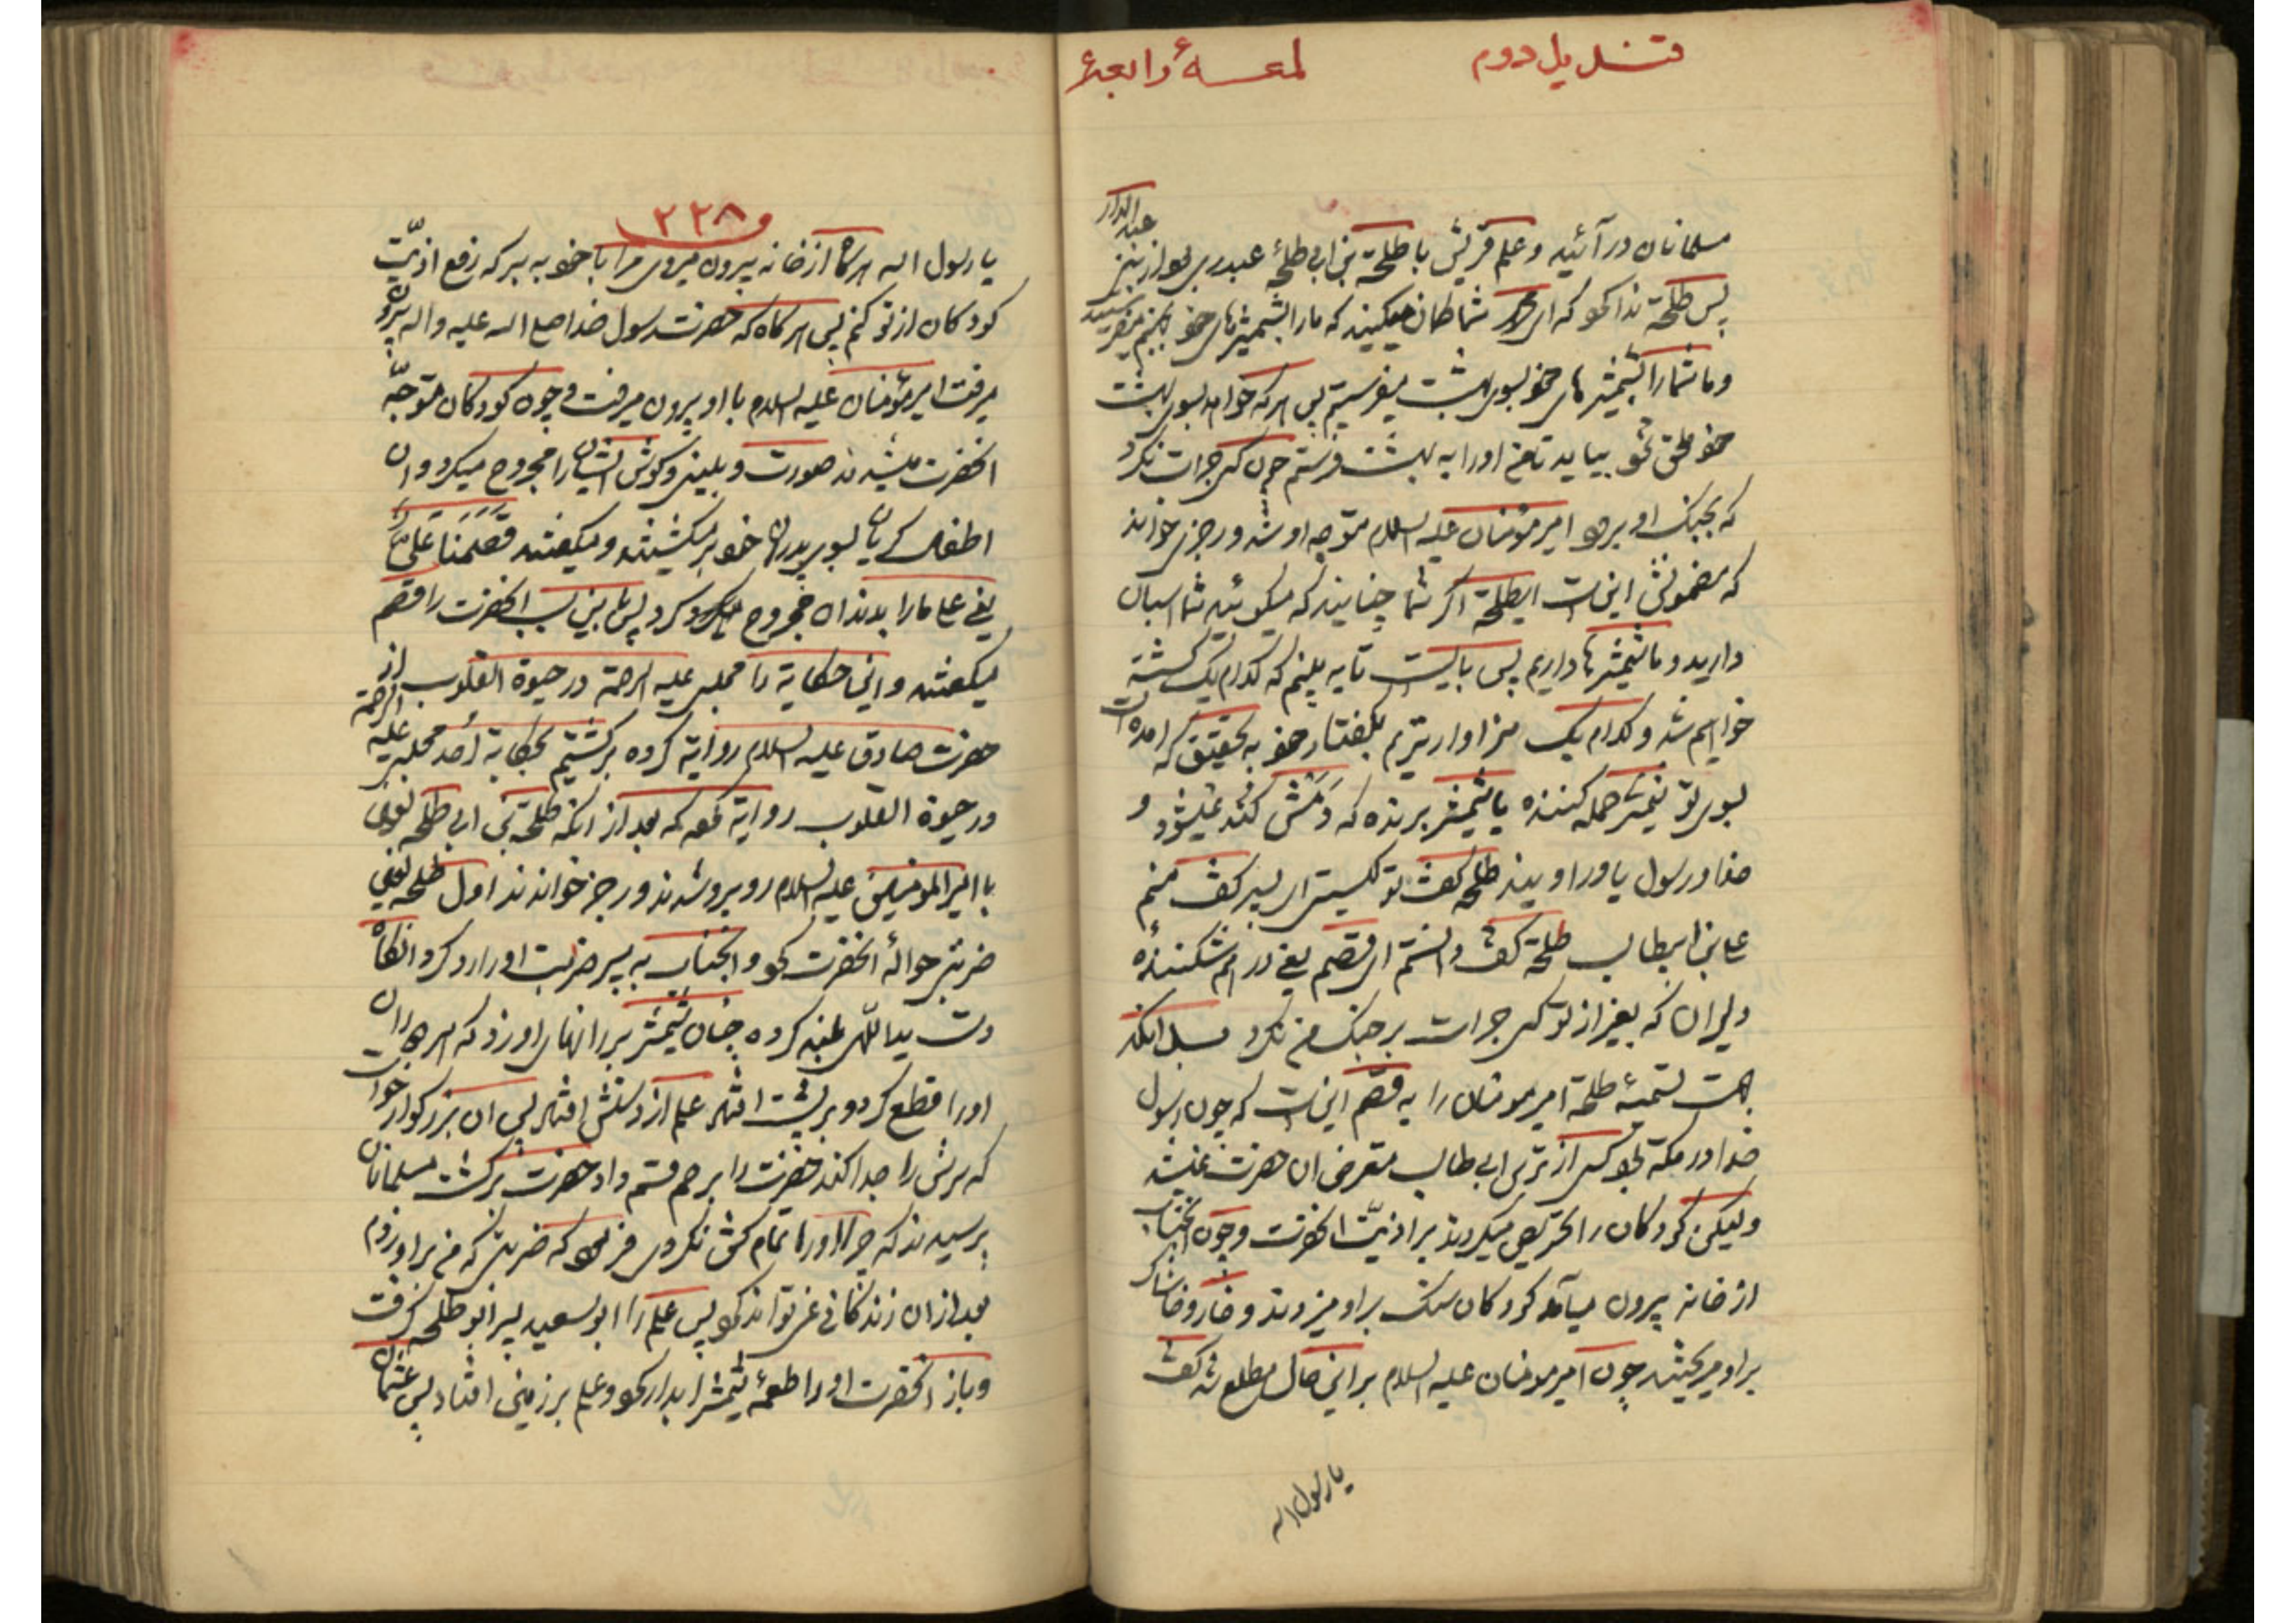 قندیل دوم لمعهٔ رابعهٔ
مسلمانان در آئید و علم قریش با طلحة بن ابی طلحهٔ عبدری بود از بنی عبدالدار
پس طلحة ندا کرد که ای شما گمان میکنید که ما را بشمشیرهای خود بجهنم میفرستید
و ما شما را بشمشیرهای خود بسوی بهشت میفرستیم پس هر که خواهد بسوی بهشت
خود ملحق شود بیاید تا من او را به بهشت فرستم چون کسی جرات نکرد
که بجنک او برود امیر مؤمنان علیه السلام متوجه او شد و رجزی خواند
که مضمونش این است ای طلحة اکر شما چنانید که میکوئید شما اسبان
دارید و ما شمشیرها داریم پس بایست تا به بینم که کدام یک کشته
خواهیم شد و کدام یک سزاوارتریم بکفتار خود به تحقیق که امده است
بسوی تو شیر حمله کننده با شمشیر برنده که دَمَش کُند نمیشود و
خدا و رسول یاور اویند طلحة کفت تو کیستی ای پسر کفت منم
علی بن ابیطالب طلحة کفت دانستم ای قصم یعنی در هم شکنندهٔ
دلیران که بغیر از تو کسی جرات بر جنک من نکرد سبل انکه
جهت تسمیهٔ طلحة امیر مومنان را به قصم این است که چون رسول
خدا در مکة بود کسی از ترس ابی طالب متعرض ان حضرت نمیشد
ولیکن کودکان را تحریص میکردند بر اذیّت انحضرت و چون انجناب
از خانه بیرون میآمد کودکان سنک بر او میزدند و خار و خاشاک
بر او میریختند چون امیر مومنان علیه السلام بر این حال مطلع شد کفت
یا رسول اله
و ٢٢٨
یا رسول اله هرکاه از خانه بیرون میروی مرا با خود به بر که رفع اذیّت
کودکان از تو کنم پس هرکاه که حضرت رسول خدا صلع اله علیه و اله بیرون
میرفت امیر مؤمنان علیه السلام با او بیرون میرفت و چون کودکان متوجّه
انحضرت میشدند صورت و بینی و کوش ایشان را مجروح میکرد و ان
اطفال کریان بسوی پدران خود بر میکشتند و میکفتند قَصَمَنَا عَلِیٌّ
یعنی علی ما را بدندان مجروح کرد پس باین سبب انحضرت را قصم
میکفتند و این حکایة را مجلسی علیه الرحمة در حیوة القلوب از
حضرت صادق علیه السلام روایة کرده برکشتیم بحکایة اُحد مجلسی علیه الرحمة
در حیوة القلوب روایة نموده که بعد از انکه طلحة بن ابی طلحه لعین
با امیر المومنین علیه السلام روبرو شدند و رجز خواندند اول طلحه لعین
ضربتی حوالهٔ انحضرت کرد و انجناب به سپر ضربت او را رد کرد انکاه
دست یداللّهی بلند کرده چنان شمشیر بر رانهای او زد که هر دو ران
او را قطع کرد و بر پشت افتاد علم از دستش افتاد پس ان بزرکوار خواست
که سرش را جدا کند حضرت را بر حم قسم داد حضرت برکشت مسلمانان
پرسیدند که چرا او را تمام کش نکردی فرمود که ضربتی که من بر او زدم
بعد از ان زندکانی نمی تواند کرد پس علم را ابو سعید پسر ابو طلحه کرفت
و باز انحضرت او را طعمهٔ شمشیر ابدار کرد و علم بر زمین افتاد پس عثمان